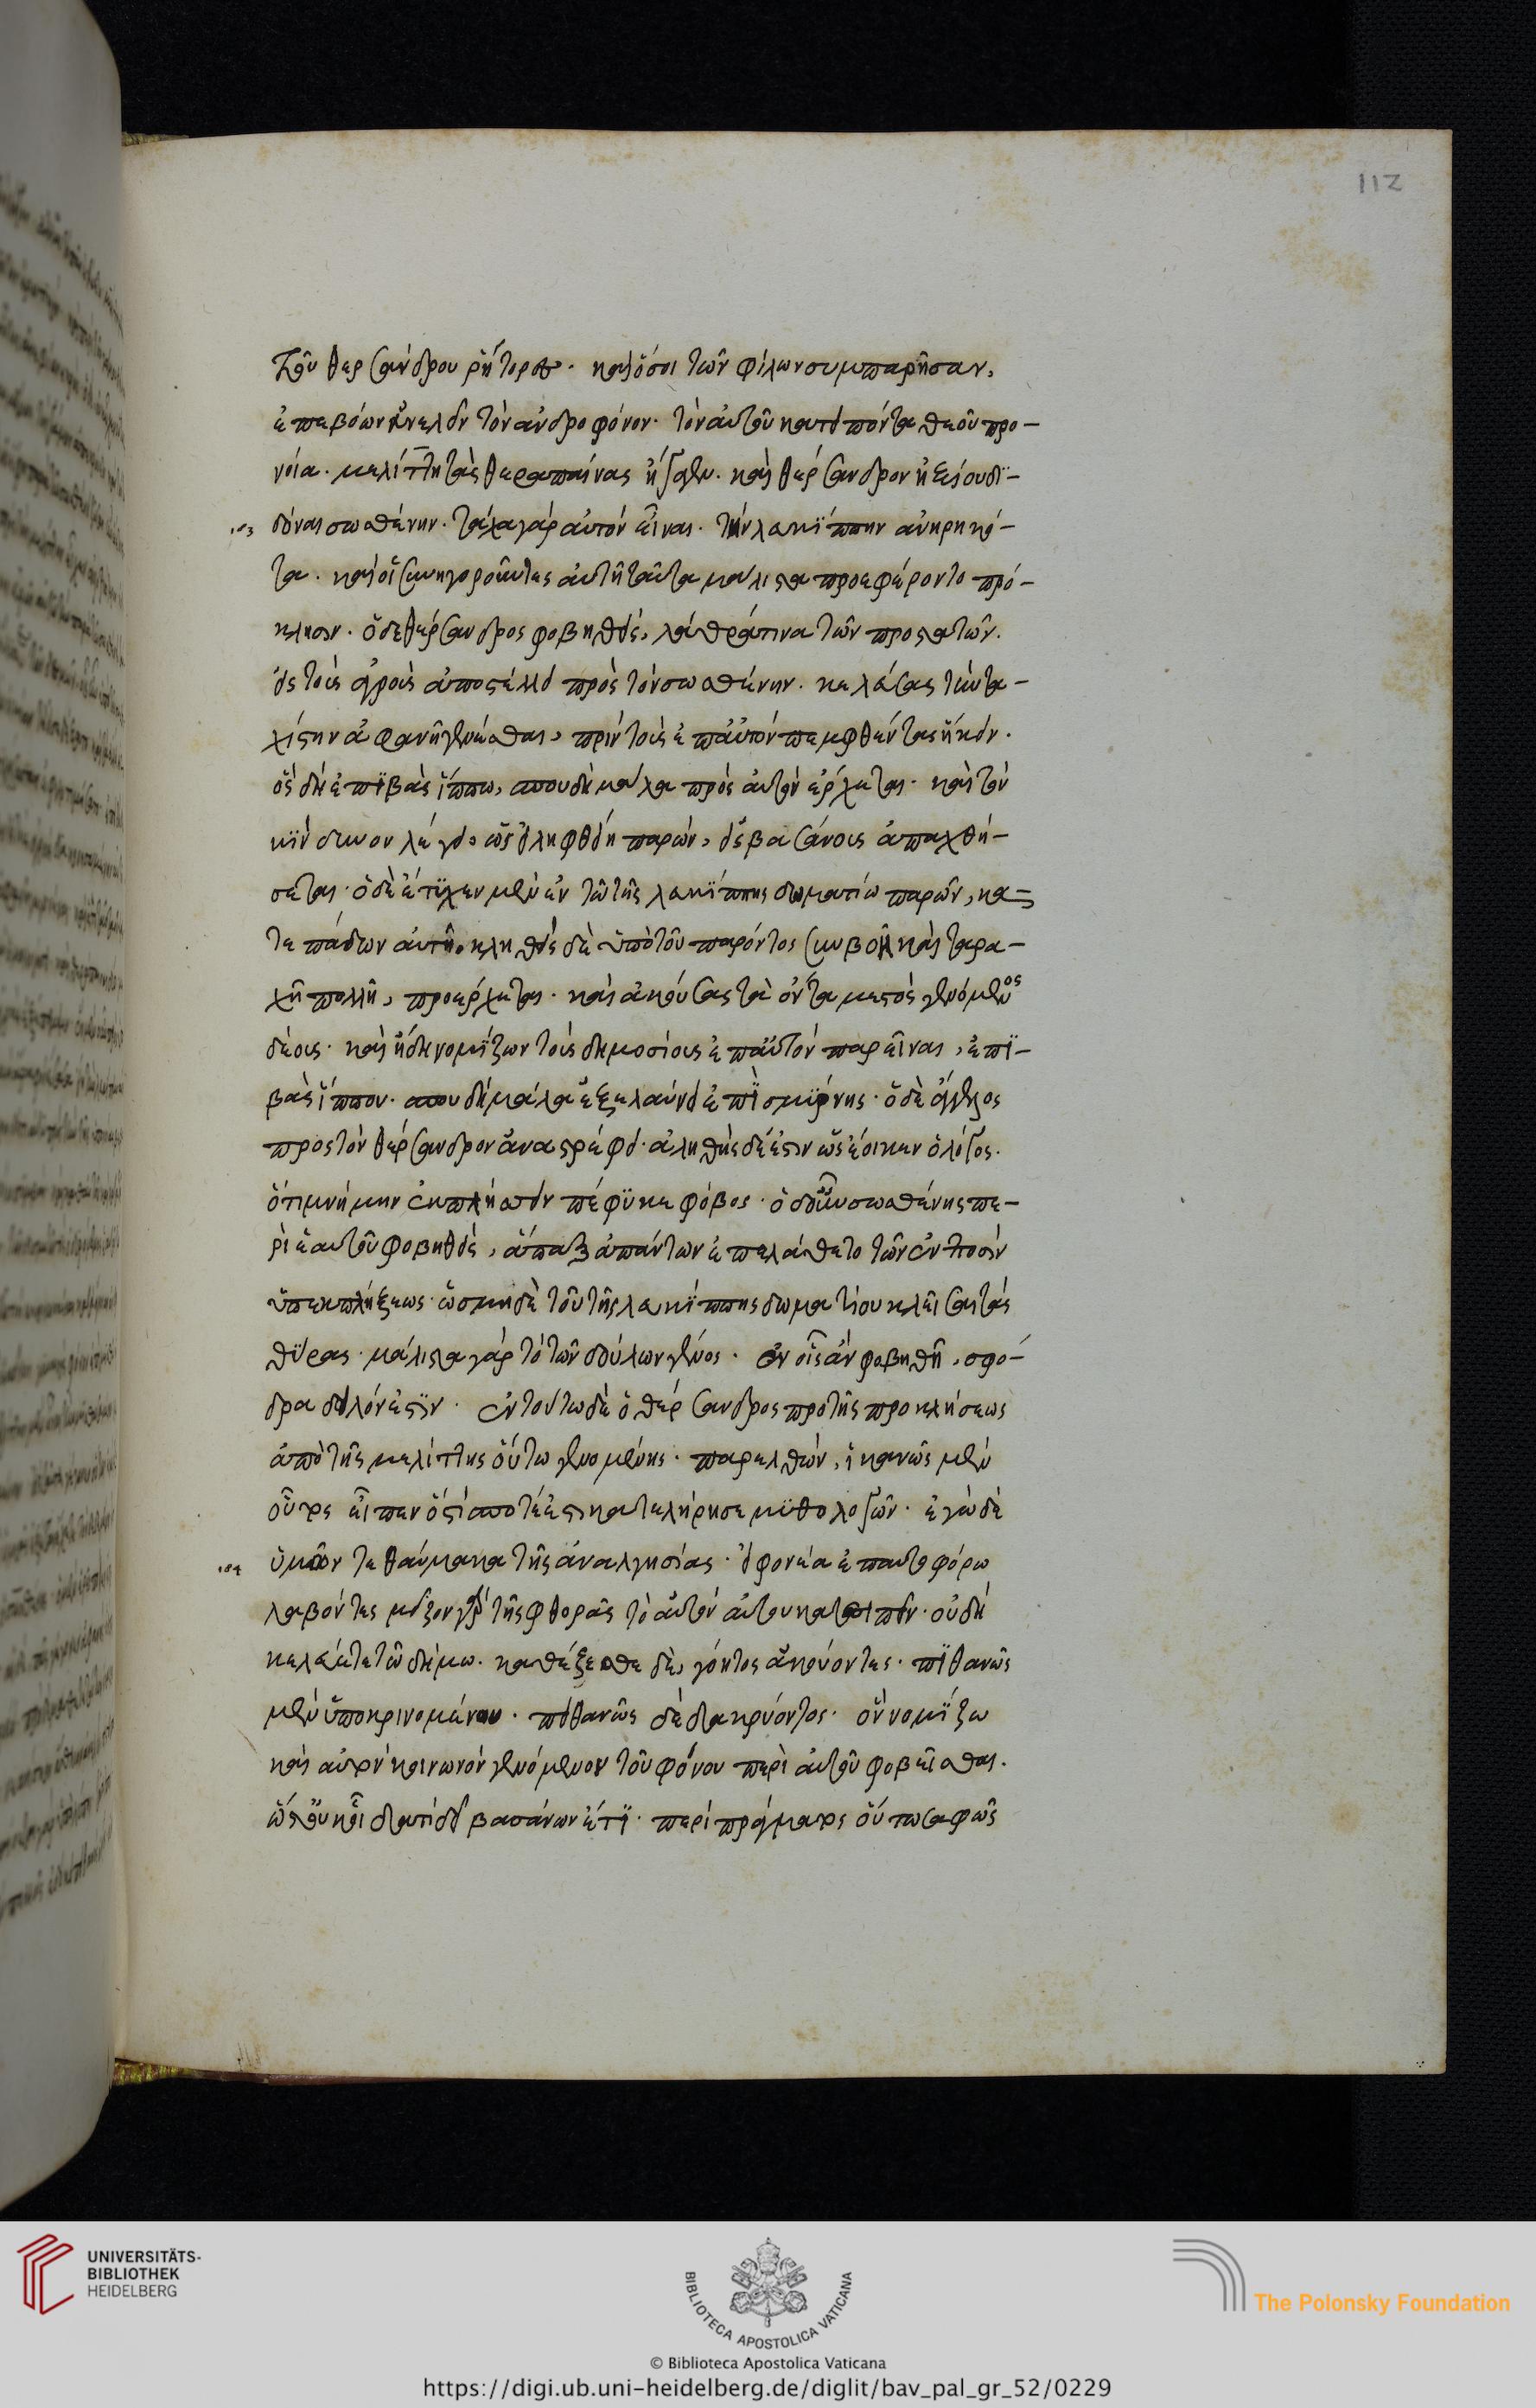 112
τοῦ θερσάνδρου ῥήτορες· καὶ ὅσοι τῶν φίλων συμπαρῆσαν,
ἐπεβόων ἀνελεῖν τὸν ἀνδροφόνον· τὸν αὐτοῦ κατειπόντα θεοῦ προ-
νοία. μελίττη τὰς θεραπαίνας ἠξίου. καὶ θέρσανδρον ἠξίου δι-
103 δόναι σωσθένην. τάχα γὰρ αὐτὸν εἶναι. τὴν λακίππην ἀνῃρηκό-
τα. καὶ οἱ συνηγοροῦντες αὐτῆ ταῦτα μάλιστα προεφέροντο πρό-
κλησιν. ὁ δὲ θέρσανδρος φοβηθείς, λάθρα τινα τῶν προστατῶν.
εἰς τοὺς ἀγροὺς ἀποστέλλει πρὸς τὸν σωσθένην. κελεύσας τὴν τα-
χίστην ἀφανῆ γενέσθαι, πρὶν τοὺς ἐπ᾽ αὐτὸν πεμφθέντας ἥκειν.
ὃς δὴ ἐπιβὰς ἵππω, σπουδῆ μάλα πρὸς αὐτὸν ἔρχεται. καὶ τὸν
κίνδυνον λέγει. ὡς εἰ ληφθείη παρών, εἰς βασάνους ἀπαχθή-
σεται. ὁ δὲ ἔτυχεν μὲν ἐν τῶ τῆς λακίππης δωματίω παρών, κα-
τεπάδων αὐτῆ. κληθεὶς δὲ ὑπὸ τοῦ παρόντος σὺν βοῆ καὶ ταρα-
χῆ πολλῆ, προέρχεται. καὶ ἀκούσας τὰ ὄντα μεστὸς γενόμενος
δέους. καὶ ἤδη νομίζων τοὺς δημοσίους ἐπ᾽ αὐτὸν παρεῖναι, ἐπι-
βὰς ἵππον. σπουδῆ μάλα ἐξελαύνει ἐπὶ σμύρνης. ὁ δὲ ἄγγελος
πρὸς τὸν θέρσανδρον ἀναστρέφει. ἀληθὴς δέ ἐστιν ὡς ἔοικεν ὁ λόγος.
ὅτι μνήμην ἐκπλήσσειν πέφυκε φόβος. ὁ γοῦν σωσθένης πε-
ρὶ ἑαυτοῦ φοβηθείς, ἅπαξ ἁπάντων ἐπελάθετο τῶν ἐν ποσὶν
ὑπ᾽ ἐκπλήξεως. ὡς μηδὲ τοῦ τῆς λακίππης δωματίου κλεῖσαι τὰς
θύρας. μάλιστα γὰρ τὸ τῶν δούλων γένος. ἐν οἷς ἂν φοβηθῆ, σφό-
δρα δειλόν ἐστιν. ἐν τούτω δὲ ὁ θέρσανδρος πρὸ τῆς προκλήσεως
ἀπὸ τῆς μελίττης οὕτω γενομένης. παρελθών, ἱκανῶς μὲν
οὗτος εἶπεν ὅστις ποτέ ἐστι κατελήρησε μυθολογῶν. ἐγὼ δὲ
104 ὑμῶν τεθαύμακα τῆς ἀναλγησίας. εἰ φονέα ἐπ᾽ αὐτοφόρω
λαβόντες μεῖζον γὰρ τῆς φθορᾶς τὸ αὐτὸν αὐτοῦ κατειπεῖν. οὐ δὴ
κελεύετε τῶ δήμω. καθέζεσθε δὲ, γόητος ἀκούοντες. πιθανῶς
μὲν ὑποκρινομένου. πιθανῶς δὲ δακρύοντος. ὃν νομίζω
καὶ αὐτὸν κοινωνὸν γενόμενον τοῦ φόνου περὶ αὐτοῦ φοβεῖσθαι.
ὥστ᾽ οὐκ οἶδα τί δεῖ βασάνων ἔτι. περὶ πράγματος οὕτω σαφῶς
UNIVERSITÄTS-
BIBLIOTHEK
HEIDELBERG
BIBLIOTECA APOSTOLICA VATICANA
The Polonsky Foundation
© Biblioteca Apostolica Vaticana
https://digi.ub.uni-heidelberg.de/diglit/bav_pal_gr_52/0229